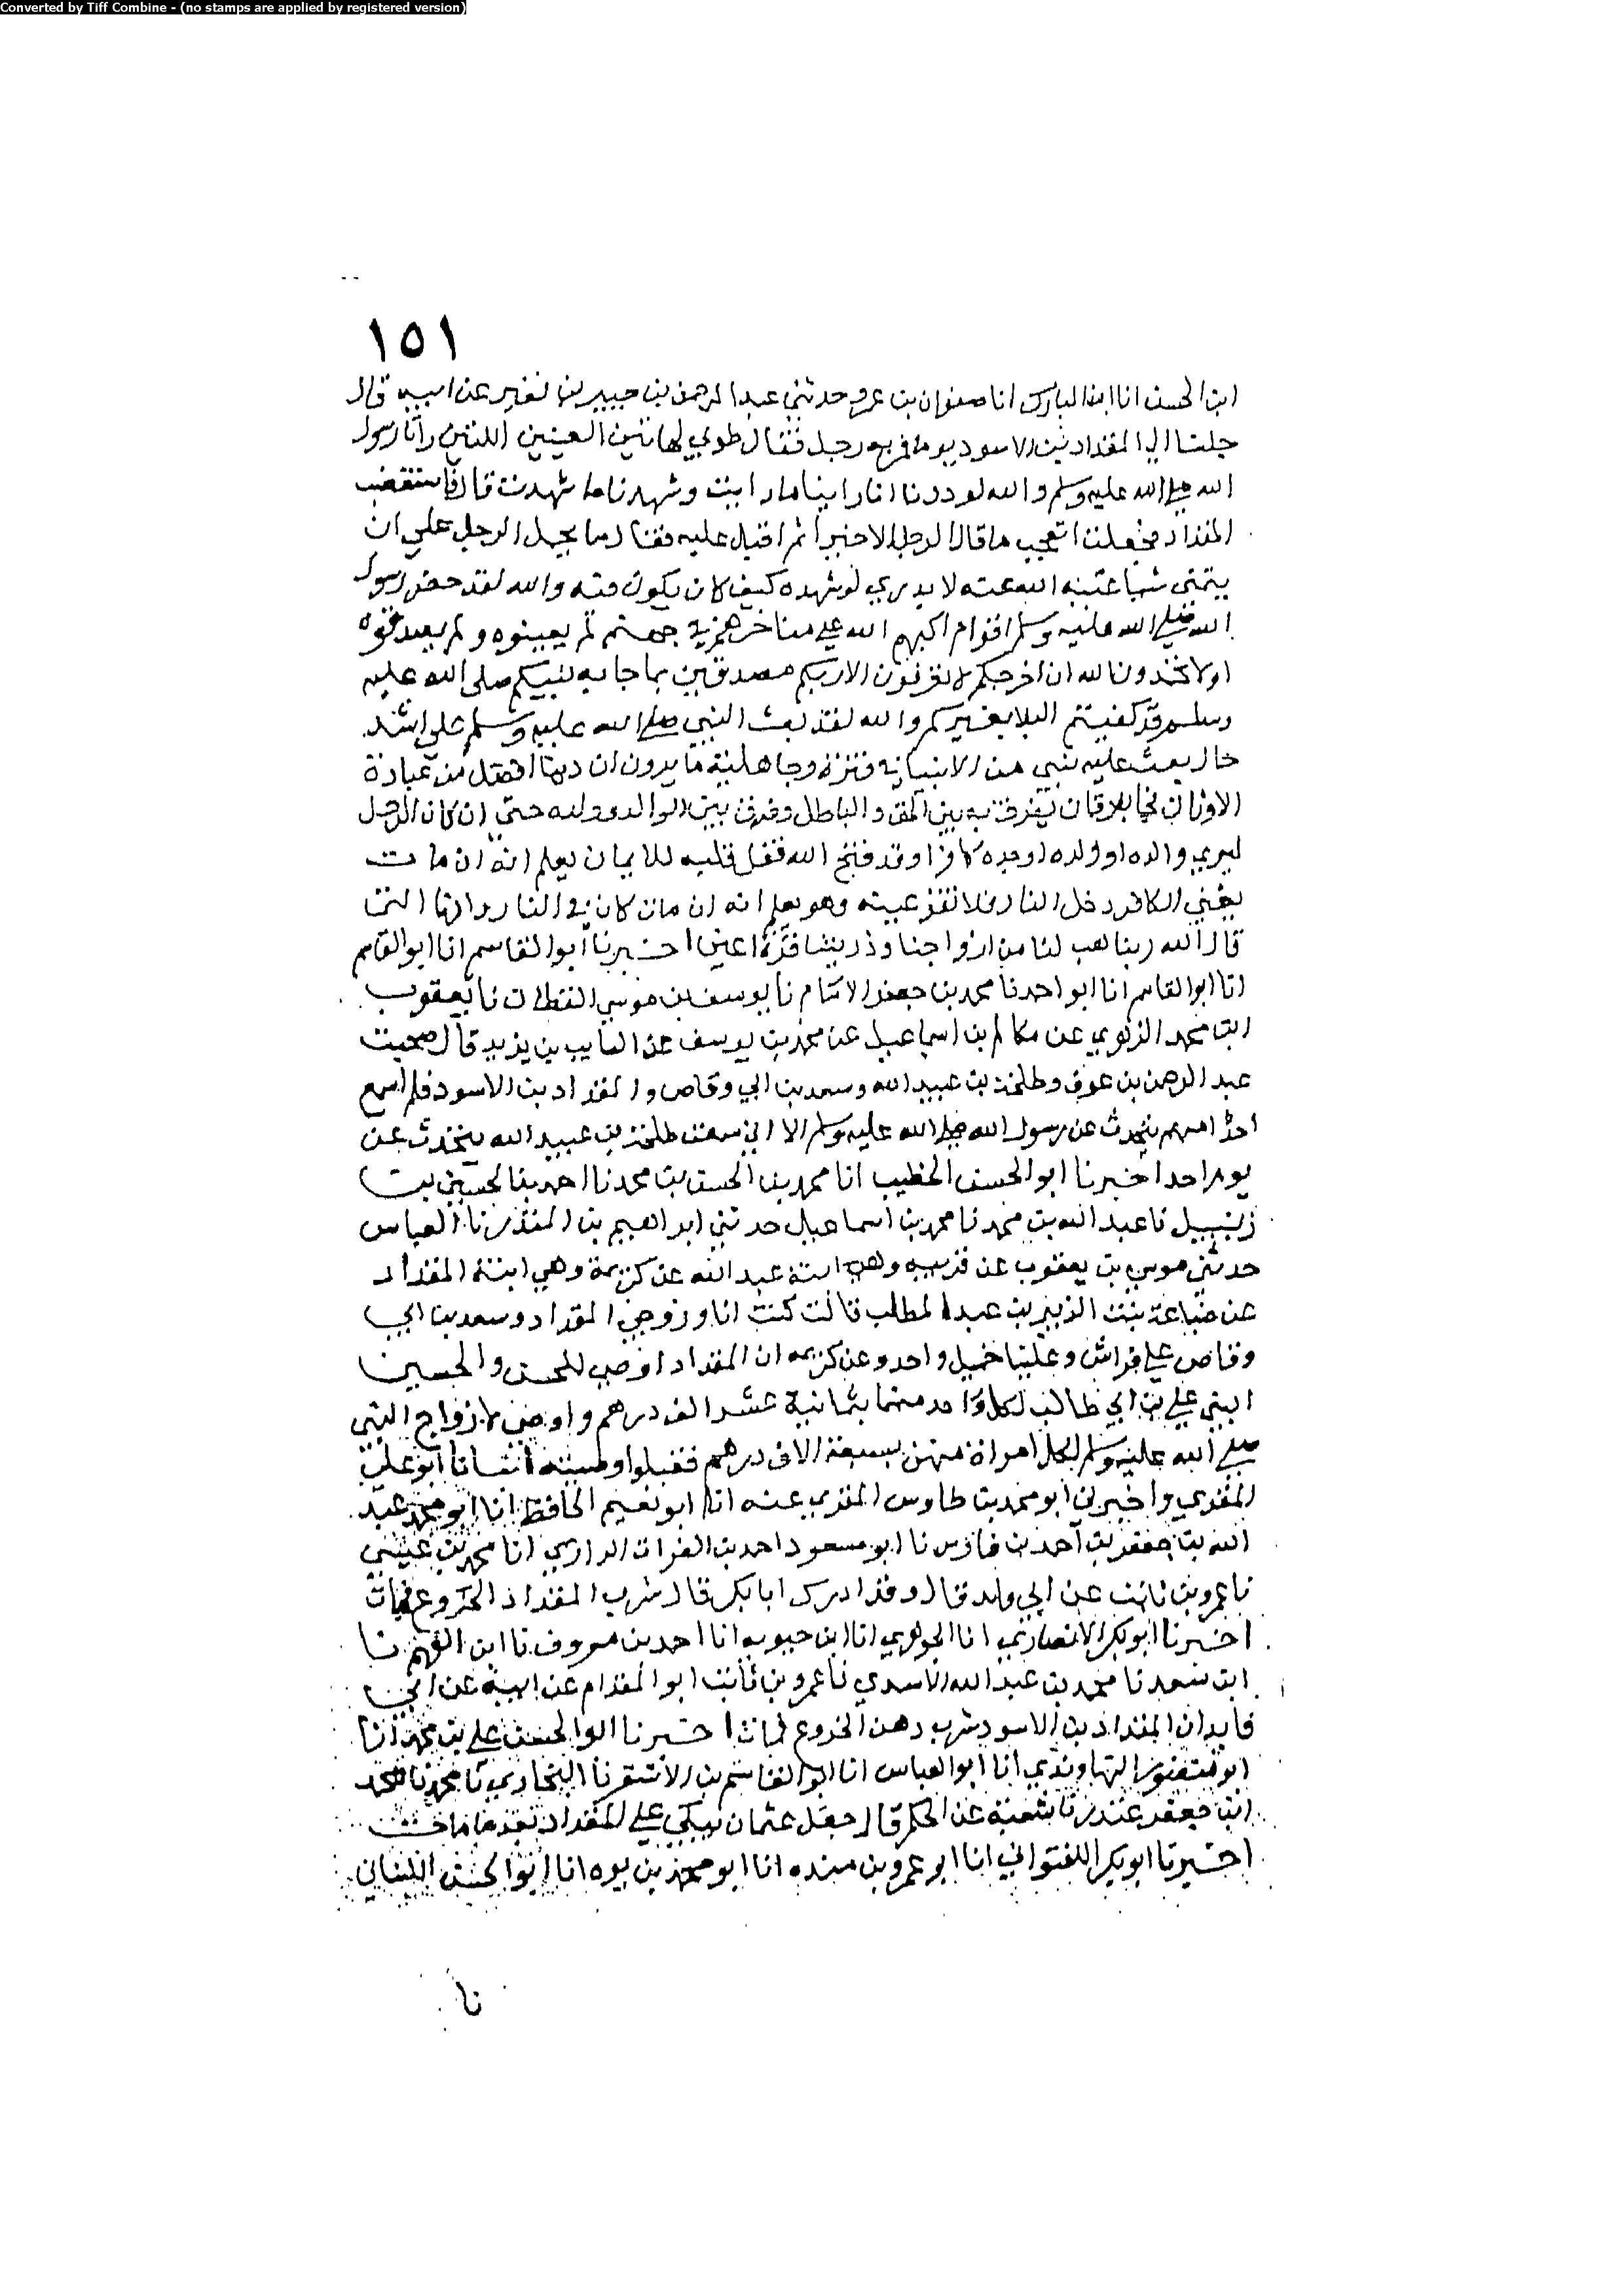 Converted by Tiff Combine - (no stamps are applied by registered version)
١٥١
ابن الحسن انا ابن المبارك انا صفوان بن عمرو حدثني عبد الرحمن بن جبير بن نفير عن ابيه قال
جلسنا الي المقداد بن الاسود يوما فمر به رجل فقال طوبي لهاتين العينين اللتين راتا رسول
الله صلى الله عليه وسلم والله لوددنا انا راينا ما رايت وشهدنا ما شهدت قال فاستغضب
المقداد فجعلت اتعجب ما قال الرجل الا خيرا ثم اقبل عليه فقال ما يحمل الرجل علي ان
يتمني شيا غيبه الله عنه لا يدري لو شهده كيف كان يكون فيه والله لقد حضر رسول
الله صلى الله عليه وسلم اقوام اكبهم الله علي مناخرهم في جهنم لم يجيبوه ولم يصدقوه
اولا تحمدون الله ان اخرجكم لا تعرفون الا ربكم مصدقين بما جا به نبيكم صلى الله عليه
وسلم قد كفيتم البلا بغيركم والله لقد بعث النبي صلى الله عليه وسلم علي اشد
حال بعث عليه نبي من الانبيا في فترة وجاهلية ما يرون ان دينا افضل من عبادة
الاوثان فجا بفرقان يفرق به بين الحق والباطل وفرق بين الوالد وولده حتي ان كان الرجل
ليري والده او ولده او كافرا وقد فتح الله قفل قلبه للايمان يعلم انه ان مات
يعني الكافر دخل النار فلا تقر عينه وهو يعلم انه ان مات كان في النار وانها التي
قال الله ربنا هب لنا من ازواجنا وذرياتنا قرة اعين اخبرنا ابو القاسم انا ابو القاسم
انا ابو القاسم انا ابو احمد نا محمد بن جعفر الامام نا يوسف بن موسي القطان نا يعقوب
ابن محمد الزهري عن حاتم بن اسماعيل عن محمد بن يوسف عن السايب بن يزيد قال صحبت
عبد الرحمن بن عوف وطلحة بن عبيد الله وسعد بن ابي وقاص والمقداد بن الاسود فلم اسمع
احدا منهم يتحدث عن رسول الله صلى الله عليه وسلم الا اني سمعت طلحة بن عبيد الله يتحدث عن
يوم احد اخبرنا ابو الحسن الخطيب انا محمد بن الحسن بن محمد نا احمد بن الحسين بن
زنبيل نا عبد الله بن محمد نا محمد بن اسماعيل حدثني ابراهيم بن المنذر نا العباس
حدثني موسي بن يعقوب عن قريبه وهي ابنة عبد الله عن كريمة وهي ابنة المقداد
عن ضباعة بنت الزبير بن عبد المطلب قالت كنت انا وزوجي المقداد وسعد بن ابي
وقاص علي فراش وعلينا خميل واحد وعن كريمه ان المقداد اوصي للحسن والحسين
ابني علي بن ابي طالب لكل واحد منهما بثمانية عشر الف درهم واوصي لازواج النبي
صلى الله عليه وسلم لكل امراة منهن بسبعة الاف درهم فقبلوا وصيته انبانا ابو علي
المقري واخبرني ابو محمد بن طاوس المقري عنه انا ابو نعيم الحافظ انا ابو محمد عبد
الله بن جعفر بن احمد بن فارس نا ابو مسعود احمد بن الفرات الرازي انا محمد بن عيسي
نا عمرو بن ثابت عن ابي قال وقد ادرك ابا بكر قال شرب المقداد الخروع فمات
اخبرنا ابو بكر الانصاري انا الجوهري انا ابن حيويه انا احمد بن معروف نا ابن الفهم نا
ابن سعد نا محمد بن عبد الله الاسدي نا عمرو بن ثابت ابو المقدام عن ابيه عن ابي
فايد ان المقداد بن الاسود شرب دهن الخروع فمات اخبرنا ابو الحسن علي بن محمد انا
ابو منصور النهاوندي انا ابو العباس انا ابو القاسم بن الاشقر نا البخاري نا محمد نا محمد
ابن جعفر غندر نا شعبة عن الحكم قال جعل عثمان يبكي علي المقداد بعد ما مات
اخبرنا ابو بكر اللفتواني انا ابو عمرو بن منده انا ابو محمد بن يوه انا ابو الحسن اللبناني
نا